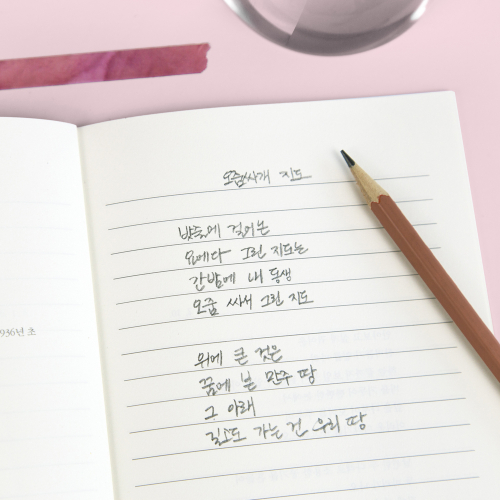 오줌싸개 지도
밧줄에 걸어논
요에다 그린 지도는
간밤에 내 동생
오줌 싸서 그린 지도
위에 큰 것은
꿈에 본 만주 땅
그 아래
길고도 가는 건 우리 땅
936년 초